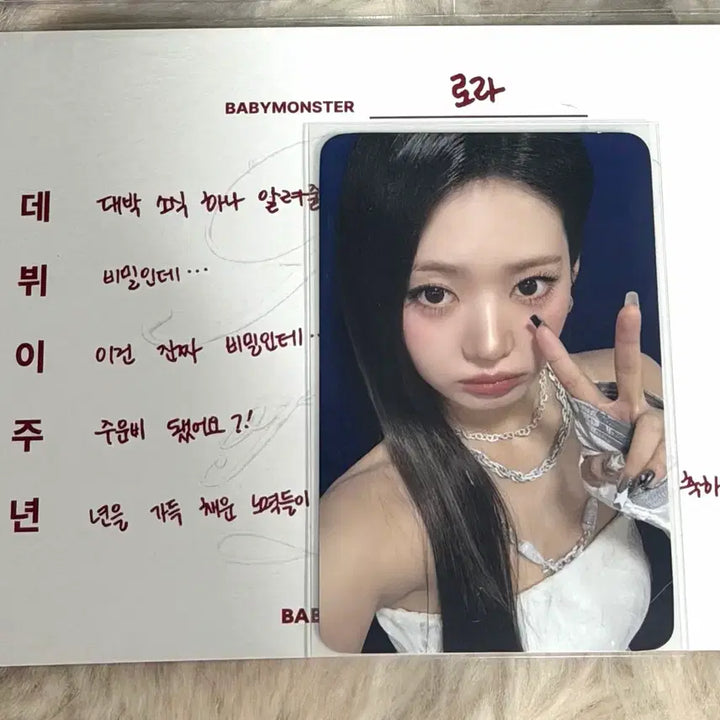 BABYMONSTER 로라
데 대박 소식 하나 알려줄
뷔 비밀인데...
이 이건 진짜 비밀인데..
주 주운비 됐어요?!
년 년을 가득 채운 노력들이 축하
BAB